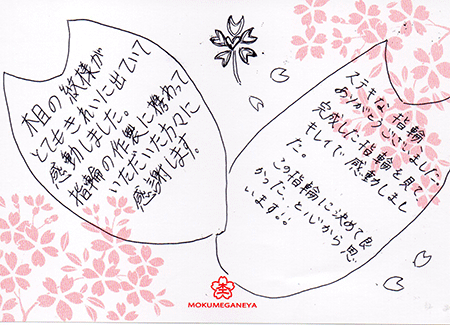 木目の紋様が
とてもきれいに出ていて
感動しました。
指輪の作製に携わって
いただいた方々に
感謝します。
ステキな指輪
ありがとうございました。
完成した指輪を見て
キレイで感動しまし
た。
この指輪に決めて良
かった、と心から思
います!!
MOKUMEGANEYA